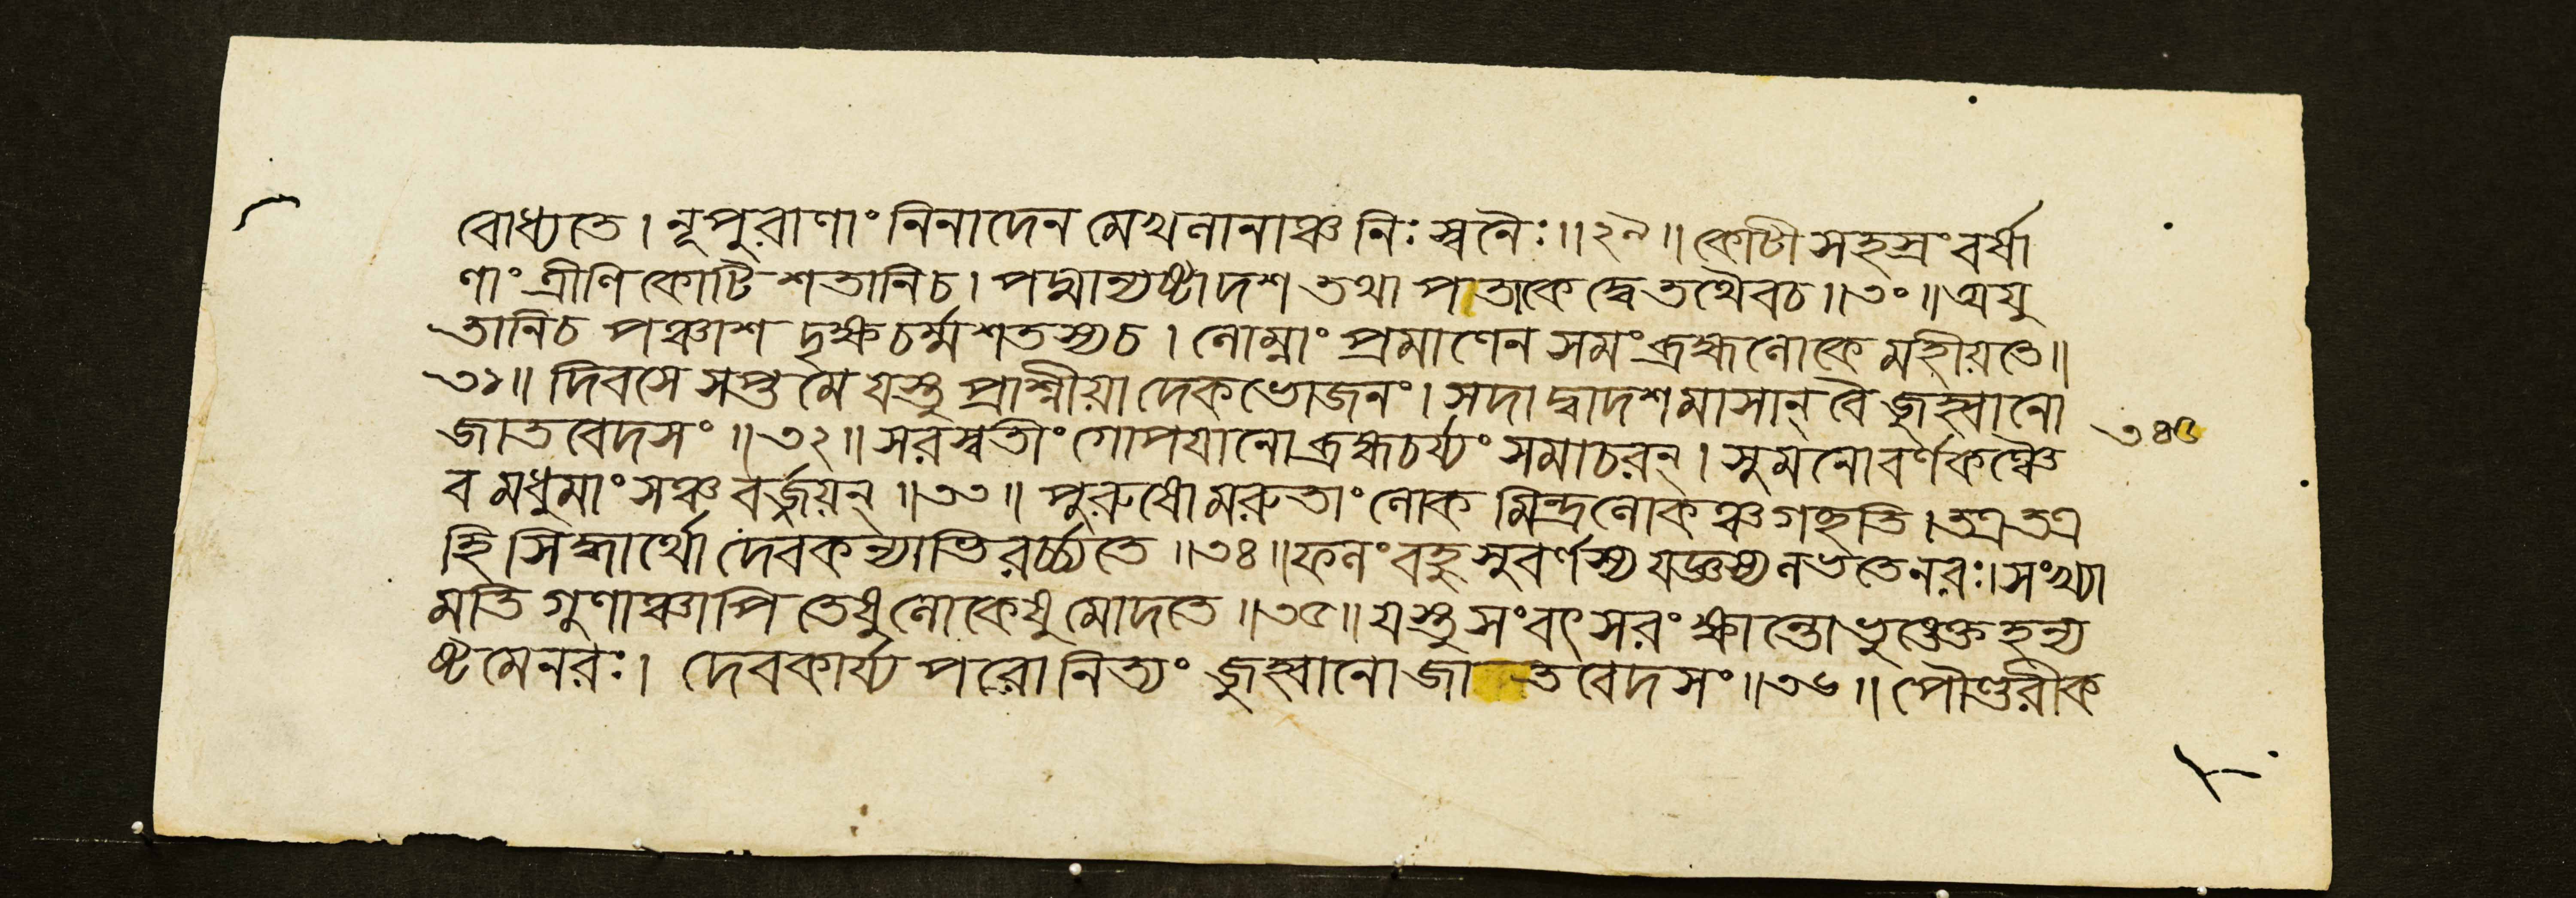 বোধ্যতে। নূপুরাণাং নিনাদেন মেখলানাঞ্চ নিঃস্বনৈঃ॥২৯॥ কোটীসহস্রং বর্ষা
ণাং ত্রীণি কোটিশতানিচ। পদ্মান্যষ্টাদশ তথা পতাকে দ্বে তথৈবচ॥৩০॥ অযু
তানিচ পঞ্চাশদৃক্ষচর্ম্মশতস্যচ। লোম্নাং প্রমাণেন সমং ব্রহ্মলোকে মহীয়তে॥
৩১॥ দিবসে সপ্তমে যস্তু প্রাশ্নীয়াদেকভোজনং। সদা দ্বাদশমাসান্ বৈ জুহ্বানো
জাতবেদসং॥৩২॥ সরস্বতীং গোপযানো ব্রহ্মচর্য্যং সমাচরন্। সুমনোবর্ণকঞ্চৈ
ব মধুমাংসঞ্চ বর্জ্জয়ন্॥৩৩॥ পুরুষো মরুতাং লোকমিন্দ্রলোকঞ্চ গচ্ছতি। তত্র তত্র
হি সিদ্ধার্থো দেবকন্যাভিরর্চ্চ্যতে॥৩৪॥ ফলং বহুসুবর্ণস্য যজ্ঞস্য লভতে নরঃ। সংখ্যা
মতিগুণাঞ্চাপি তেষু লোকেষু মোদতে॥৩৫॥ যস্তু সংবৎসরং ক্ষান্তো ভুঙ্ক্তেহন্য
ষ্টমে নরঃ। দেবকার্য্যপরো নিত্যং জুহ্বানো জাতবেদসং॥৩৬॥ পৌণ্ডরীক